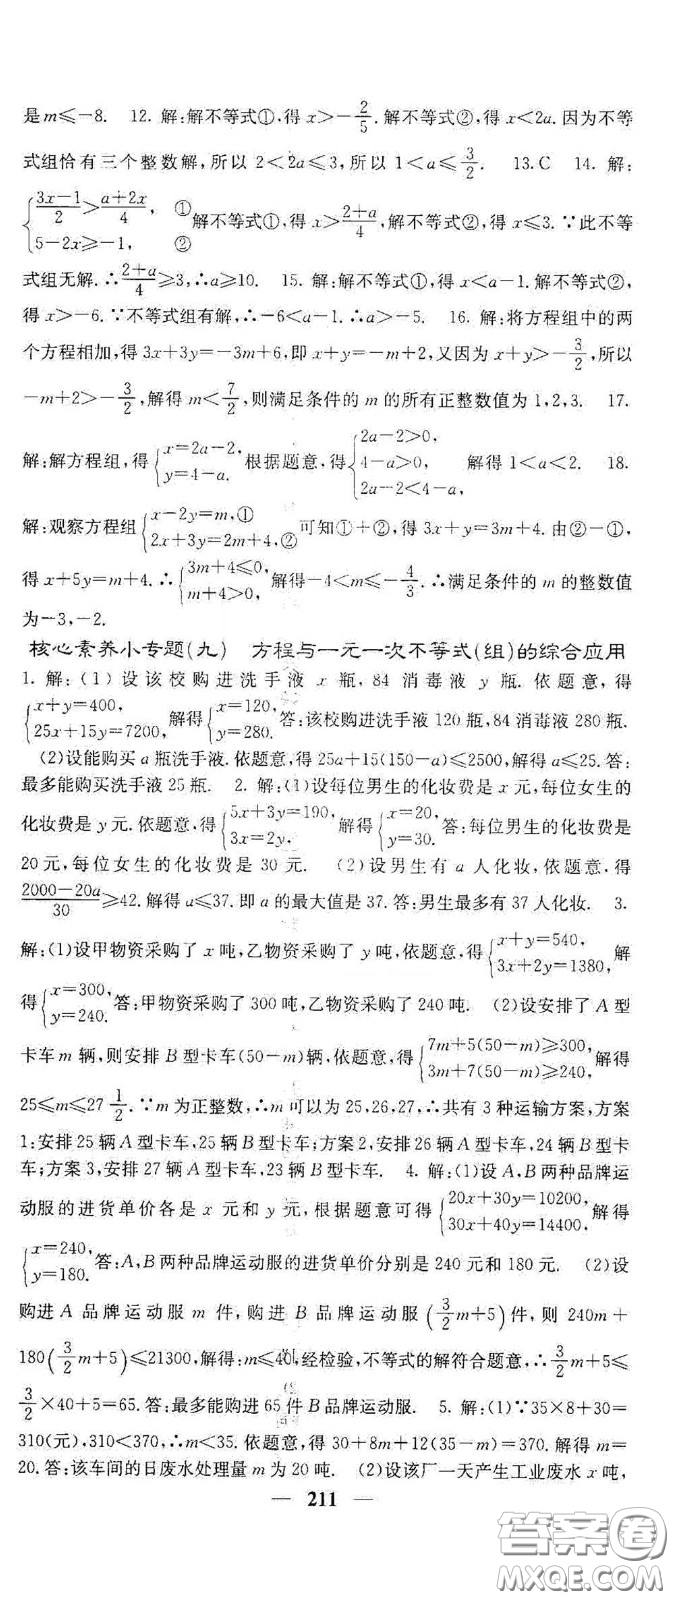 是m≤-8. 12. 解:解不等式①,得 x>-2/5. 解不等式②,得 x<2a. 因为不等
式组恰有三个整数解,所以 2<2a≤3,所以 1<a≤3/2. 13.C 14. 解:
{(3x-1)/2>(a+2x)/4, ① 5-2x≥-1, ② 解不等式①,得 x>(2+a)/4,解不等式②,得 x≤3. ∵此不等
式组无解.∴(2+a)/4≥3,∴a≥10. 15. 解:解不等式①,得 x<a-1. 解不等式②,
得 x>-6.∵不等式组有解,∴-6<a-1.∴a>-5. 16. 解:将方程组中的两
个方程相加,得 3x+3y=-3m+6,即 x+y=-m+2,又因为 x+y>-3/2,所以
-m+2>-3/2,解得 m<7/2,则满足条件的 m 的所有正整数值为 1,2,3. 17.
解:解方程组,得{x=2a-2, y=4-a. 根据题意,得{2a-2>0, 4-a>0, 2a-2<4-a, 解得 1<a<2. 18.
解:观察方程组{x-2y=m,① 2x+3y=2m+4,② 可知①+②,得 3x+y=3m+4. 由②-①,
得 x+5y=m+4.∴{3m+4≤0, m+4>0, 解得-4<m≤-4/3.∴满足条件的 m 的整数值
为-3,-2.
核心素养小专题(九) 方程与一元一次不等式(组)的综合应用
1. 解:(1)设该校购进洗手液 x 瓶,84 消毒液 y 瓶. 依题意,得
{x+y=400, 25x+15y=7200, 解得{x=120, y=280. 答:该校购进洗手液 120 瓶,84 消毒液 280 瓶.
(2)设能购买 a 瓶洗手液.依题意,得 25a+15(150-a)≤2500,解得 a≤25.答:
最多能购买洗手液 25 瓶. 2. 解:(1)设每位男生的化妆费是 x 元,每位女生的
化妆费是 y 元.依题意,得{5x+3y=190, 3x=2y, 解得{x=20, y=30. 答:每位男生的化妆费是
20 元,每位女生的化妆费是 30 元. (2)设男生有 a 人化妆,依题意,得
(2000-20a)/30≥42.解得 a≤37. 即 a 的最大值是 37.答:男生最多有 37 人化妆. 3.
解:(1)设甲物资采购了 x 吨,乙物资采购了 y 吨,依题意,得{x+y=540, 3x+2y=1380, 解
得{x=300, y=240. 答:甲物资采购了 300 吨,乙物资采购了 240 吨. (2)设安排了 A 型
卡车 m 辆,则安排 B 型卡车(50-m)辆,依题意,得{7m+5(50-m)≥300, 3m+7(50-m)≥240, 解得
25≤m≤27 1/2.∵m 为正整数,∴m 可以为 25,26,27,∴共有 3 种运输方案,方案
1:安排 25 辆 A 型卡车,25 辆 B 型卡车;方案 2,安排 26 辆 A 型卡车,24 辆 B 型卡
车;方案 3,安排 27 辆 A 型卡车,23 辆 B 型卡车. 4. 解:(1)设 A,B 两种品牌运
动服的进货单价各是 x 元和 y 元,根据题意可得{20x+30y=10200, 30x+40y=14400, 解得
{x=240, y=180. 答:A,B 两种品牌运动服的进货单价分别是 240 元和 180 元. (2)设
购进 A 品牌运动服 m 件,购进 B 品牌运动服(3/2m+5)件,则 240m+
180(3/2m+5)≤21300,解得:m≤40,经检验,不等式的解符合题意,∴3/2m+5≤
3/2×40+5=65.答:最多能购进 65 件 B 品牌运动服. 5. 解:(1)∵35×8+30=
310(元),310<370,∴m<35.依题意,得 30+8m+12(35-m)=370. 解得 m=
20. 答:该车间的日废水处理量 m 为 20 吨. (2)设该厂一天产生工业废水 x 吨,
— 211 —
答案圈
MXQE.COM